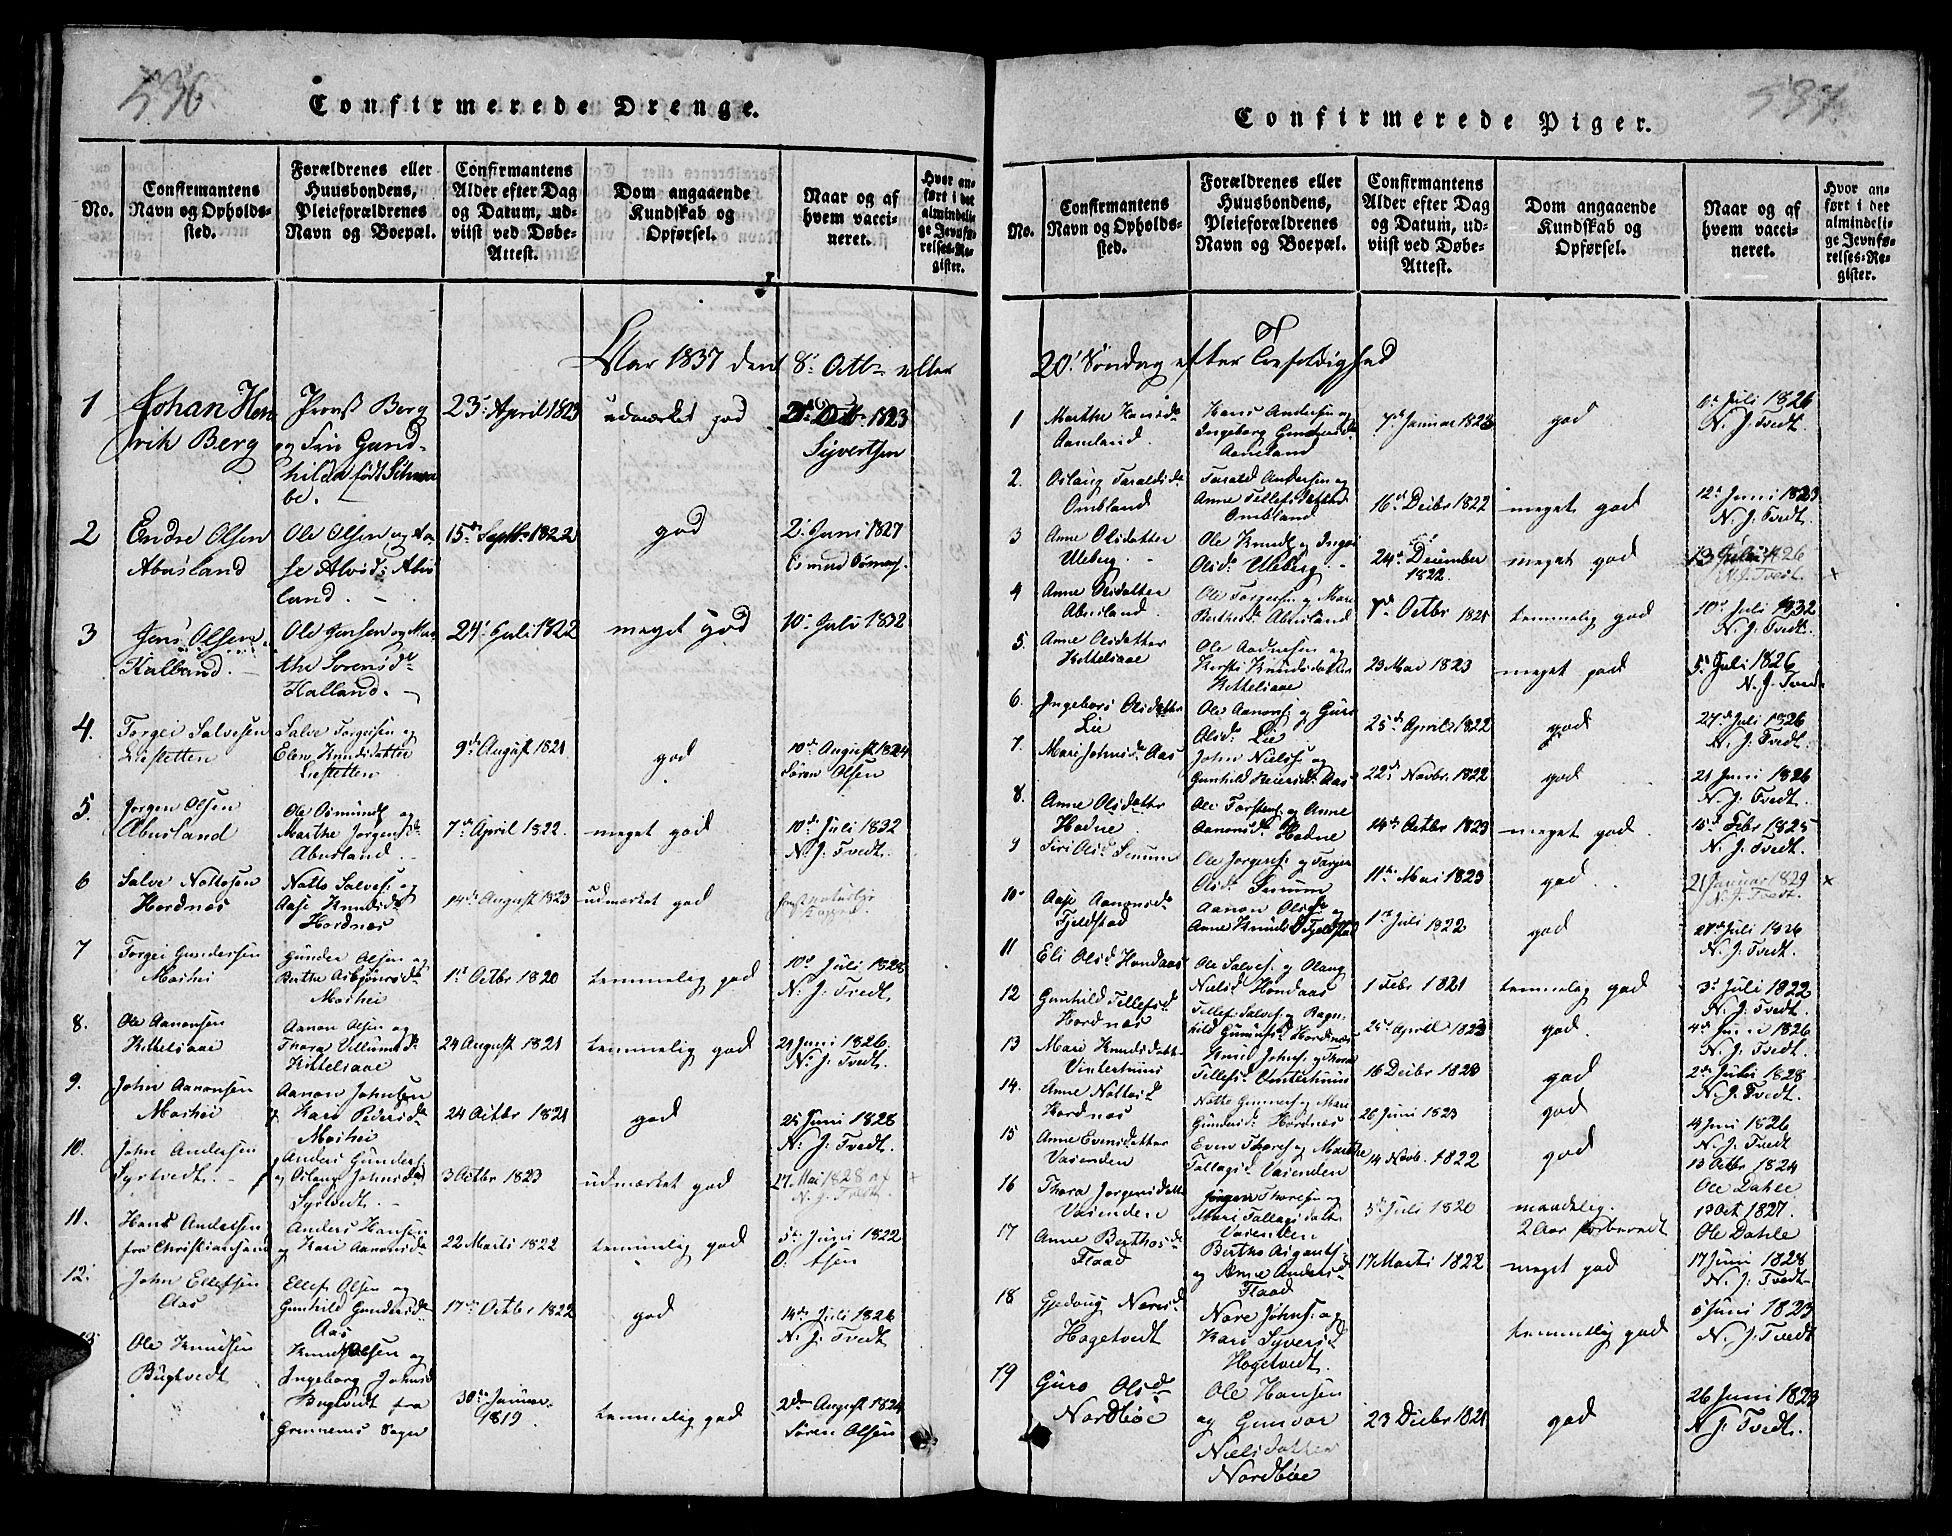 536.
Confirmerede Drenge.
No.
Confirmantens
Navn og Opholds-
sted.
Forældrenes eller
Huusbondens,
Pleieforældrenes
Navn og Boepæl.
Confirmantens
Alder efter Dag
og Datum, ud-
viist ved Døbe-
Attest.
Dom angaaende
Kundskab og
Opførsel.
Naar og af
hvem vacci-
neret.
Hvor an-
ført i det
almindeli-
ge Jevnfø-
relses-Re-
gister.
Aar 1837 den 8' Octb. eller
1 Johan Hen
rik Berg
Provst Berg
og Fru Gund-
hilda født Schwa-
be.
23' April 1823
udmærket god
1823
Syvertsen
2 Endre Olsen
Abusland
Ole Olsen og Aa-
se Alvsd: Abus
land.
15de Septb. 1822
god
2' Juni 1827
3 Jens Olsen
Kalland.
Ole Jensen og Mar
the Sørensdr
Kalland.
24' Juli 1822
meget god
10' Juli 1832
4. Torgei Salvesen
Liestetten
Salve Torgeisen og
Elen Knudsdatter
Liestetten
9de August 1821
god
10de August 1824
Søren Olsen
5. Jørgen Olsen
Abusland
Ole Osmunds. og
Marthe Jørgensdr
Abusland.
7de April 1822.
meget god
10de Juli 1832
N. J. Tvedt.
6 Salve Nottosen
Hordnæs
Notto Salves. og
Aase Knudsdr
Hordnæs
14de August 1823
udmærket god
naturlige
7 Torgei Gundersen
Moshei
Gunder Olsen og
Berthe Asbjørnsdr
Moshei
1st Octbr 1820
temmelig god
10d Juli 1828
N. J. Tvedt.
8. Ole Aanonsen
Kittelsaae
Aanon Olsen og
Thora Villumsdr
Kittelsaae
24 August 1821
temmelig god
21 Juni 1826
N. J. Tvedt.
9. John Aanonsen
Moshei
Aanon Johnsen
og Kari Pedersdr
Moshei
24 Octbr 1821
god
25 Juni 1828
N. J. Tvedt.
10. John Andersen
Syrtvedt.
Anders Gunders.
og Aslaug Johnsdr
Syrtvedt.
3 Octbr 1823
udmærket god
27. Mai 1828 af
N. J. Tvedt
11. Hans Andersen
fra Christianssand
Anders Hansen
og Kari Aanonsdr
22 Marts 1822
temmelig god
5te Juni 1822
12. John Ellefsen
Aas
Ellef Olsen og
Gunhild Gundersdr
Aas
17de Octbr 1822
god
14de Juli 1826
N. J. Tvedt.
13. Ole Knudsen
Bugtvedt
Knud Olsen og
Ingeborg Johnsd
Bugtvedt fra
Sogn
30te Januar
1819
temmelig god
2den August 1824
Søren Olsen
537.
Confirmerede Piger.
No.
Confirmantens
Navn og Opholds-
sted.
Forældrenes eller
Huusbondens,
Pleieforældrenes
Navn og Boepæl.
Confirmantens
Alder efter Dag
og Datum, ud-
viist ved Døbe-
Attest.
Dom angaaende
Kundskab og
Opførsel.
Naar og af
hvem vacci-
neret.
Hvor an-
ført i det
almindeli-
ge Jevnfø-
relses-Re-
gister.
20' Søndag efter Trefoldighed
1 Marthe Hansdr
Aamland.
Hans Andersen og
Ingeborg
Aamland
7de Januar 1823
god
6te Juli 1826
N. J. Tvedt.
2. Taraldsdr
Ombland
Tarald Andersen og
Anne Tellefsdatter
Ombland
16de Decbr 1822
meget god
12te Juni 1823
N. J. Tvedt.
3 Anne Olsdatter
Uleberg.
Ole Knuds. og
Olsdr Uleberg.
24de December
1822.
meget god
N. J. Tvedt. x
4 Anne Olsdatter
Abusland.
Ole Torgers. og Mari
Abusland
7de Octbr 1821
temmelig god
10de Juli 1832
N. J. Tvedt.
5. Anne Olsdatter
Kittelsaae
Ole Aadnesen og
Kirsti Knudsdatter
Kittelsaae
23 Mai 1823
meget god
5te Juli 1826
N. J. Tvedt
6. Ingebor Olsdatter
Lie
Ole Aanons. og Guro
Olsdr Lie
25de April 1822
god
27de Juli 1826
N. J. Tvedt.
7. Mari Johnsdr Aas
John Niels. og
Gunhild Aas
22de Novbr 1822
god
21 Juni 1826
N. J. Tvedt.
8. Anne Olsdatter
Hodne.
Ole Torstens. og Anne
Aanonsdr Hodne
14de Octbr 1823
meget god
15d Febr 1825
N. J. Tvedt.
9 Siri Olsdr Senum
Ole Jørgens. og
Olsdr Senum
11te Mai 1823
god
21 Januar 1829
N. J. Tvedt. x
10. Aase Aanonsdr
Fjeldstad
Aanon Olsen og
Anne Knudsd Fjeldstad
1ste Juli 1822
god
N. J. Tvedt.
11 Eli Olsd Hondaas
Ole Salves. og
Nielsd Hondaas
1 Febr 1821
temmelig god
3d Juli 1822
N. J. Tvedt.
12 Gunhild Tellefsd
Hordnæs
Tellef Salves. og Ragn-
hild Hordnæs
25de April 1823
god.
4de Juni 1826
N. J. Tvedt.
13 Mari Knudsdatt.
Vinterhuus
Knud Johns. og Thora
Tellefsd. Vinterhuus
16 Decbr 1823
god
2de Juli 1828
N. J. Tvedt.
14. Anne Nottosd
Hordnæs
Notto Gunners. og Mari
Gundersd: Hordnæs
26 Juni 1823
god
4 Juni 1826
N. J. Tvedt
15 Anne Evensdatter
Vasenden
Even Thores. og Marthe
Tallagsd: Vasenden
14 Novb. 1822
god
13 Octbr 1824
Ole Dahle
16 Thora Jørgensdatt.
Vasenden
Jørgen Thoresen og
Mari Tallagsdatt.
Vasenden
5te Juli 1820
maadelig.
2 Aar forberedt
19 Oct. 1827.
Ole Dahle
17 Anne Berthosdr
Flaad
Bertho
og Anne Andersd
Flaad
17 Marts 1822
meget god
17 Juni 1828
N. J. Tvedt
18 Noresdr
Hogetvedt
Nore Johns. og
Kari Syversd
Hogetvedt.
temmelig god
5 Juni 1823
N. J. Tvedt
19 Guro Olsd
Nordbøe
Ole Hansen
og Gunvor
Nielsdatter
Nordbøe
23 Decbr 1821
god
26 Juni 1823
N. J. Tvedt.